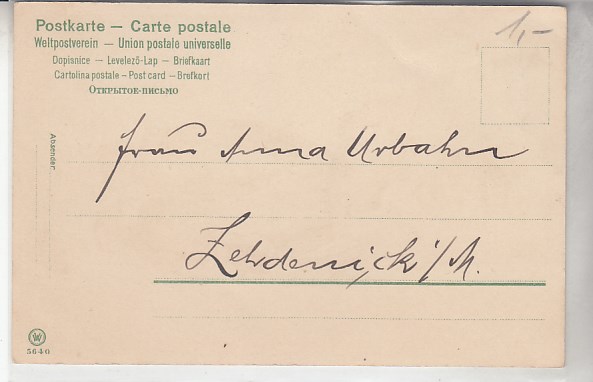 Postkarte — Carte postale
Weltpostverein — Union postale universelle
Dopisnice — Levelező-Lap — Briefkaart
Cartolina postale – Post card – Brefkort
Открытое-письмо
1,-
Absender:
Frau Anna Urbahn
Zehdenick i/M.
5640